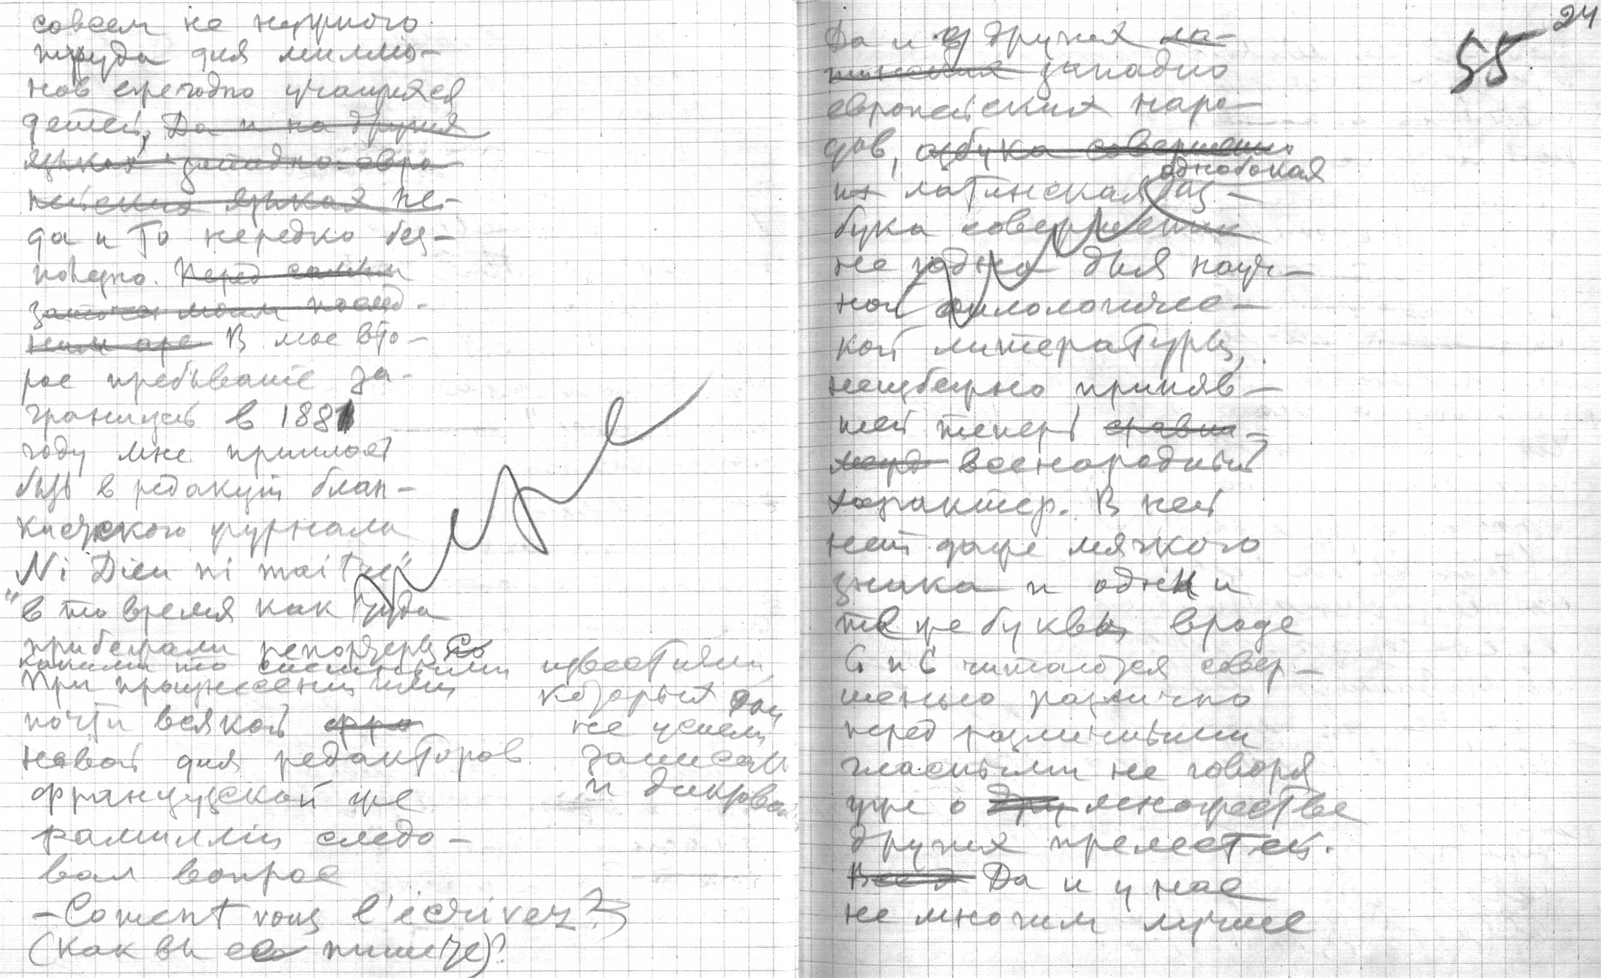 совсем не нужного
труда для миллио-
нов ежегодно учащихся
детей, Да и на других
языках западно-евро
пейских языках не-
да и то нередко без-
полезно. Перед самым
моим послед-
ним аре В мое вто-
рое пребывание за-
границей в 1881
году мне пришлось
быть в редакции блан-
кистского журнала
"Ni Dieu ni maitre"
в то время как туда
прибегали репортеры со
какими то известиями
которых они
не успели
записать
и диктова
При произнесении ими
почти всякой
новой для редакторов
французской же
фамилии следо-
вал вопрос
— Coment vous l'écrivez?
(Как вы ее пишете)?
24
55
Да и у других ла-
тинских западно
европейских наро-
дов, азбука совершенно
однобокая
их латинская аз-
бука совершенно
не годна для науч-
ной филологичес-
кой литературы,
неизбежно приняв-
шей теперь сравни-
всенародный
характер. В ней
нет даже мягкого
знака и одни и
те же буквы вроде
G и C читаются совер-
шенно различно
перед различными
гласными не говоря
уже о множестве
других прелестей.
Да и у нас
не многим лучше